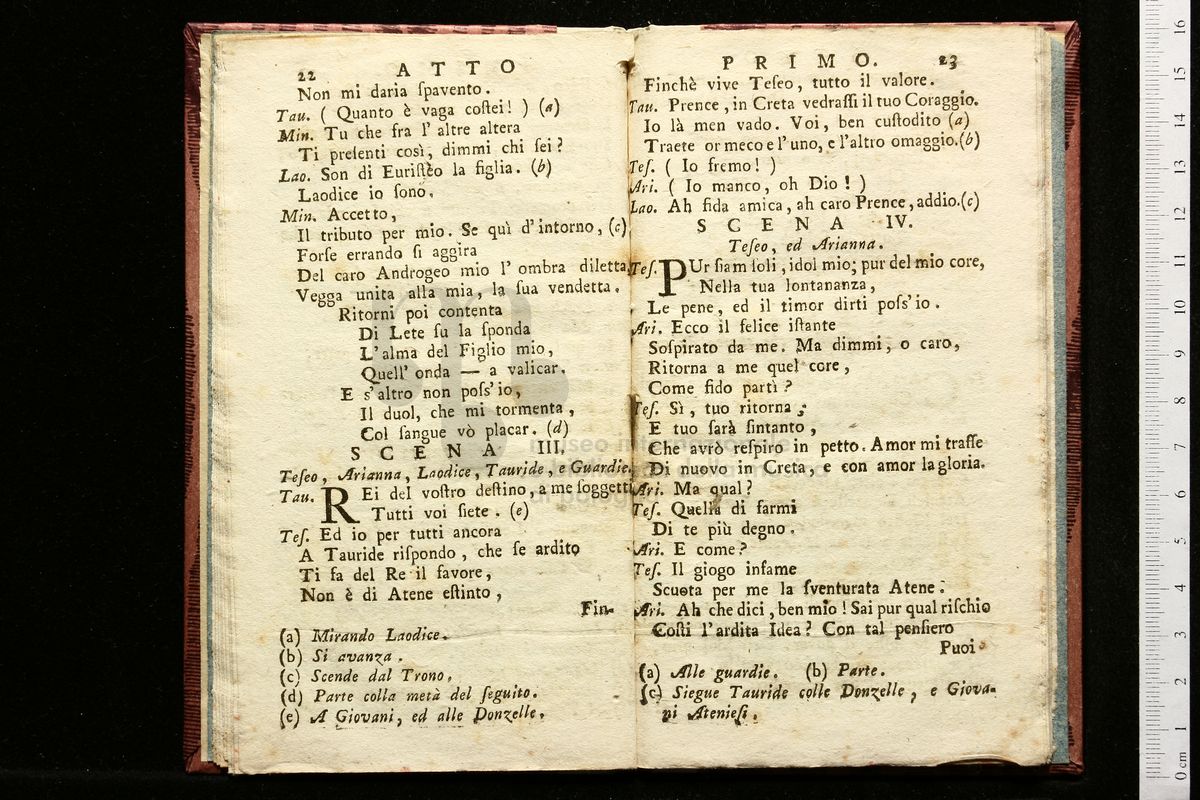 22 ATTO
Non mi daria ſpavento.
Tau. ( Quanto è vaga coſtei! ) (a)
Min. Tu che fra l' altre altera
Ti preſenti così, dimmi chi ſei?
Lao. Son di Euriſtèo la figlia. (b)
Laodice io ſono.
Min. Accetto,
Il tributo per mio. Se quì d'intorno, (c)
Forſe errando ſi aggira
Del caro Androgeo mio l' ombra diletta,
Vegga unita alla mia, la ſua vendetta.
Ritorni poi contenta
Di Lete ſu la ſponda
L'alma del Figlio mio,
Quell' onda — a valicar.
E s'altro non poſs'io,
Il duol, che mi tormenta,
Col ſangue vò placar. (d)
SCENA III.
Teſeo, Arianna, Laodice, Tauride, e Guardie.
Tau. REi del voſtro deſtino, a me ſoggetti
Tutti voi ſiete. (e)
Teſ. Ed io per tutti ancora
A Tauride riſpondo, che ſe ardito
Ti fa del Re il favore,
Non è di Atene eſtinto,
Fin-
(a) Mirando Laodice.
(b) Si avanza.
(c) Scende dal Trono.
(d) Parte colla metà del ſeguito.
(e) A Giovani, ed alle Donzelle.
PRIMO. 23
Finchè vive Teſeo, tutto il valore.
Tau. Prence, in Creta vedraſſi il tuo Coraggio.
Io là men vado. Voi, ben cuſtodito (a)
Traete or meco e l'uno, e l'altro omaggio.(b)
Teſ. ( Io fremo! )
Ari. ( Io manco, oh Dio! )
Lao. Ah fida amica, ah caro Prence, addio.(c)
SCENA IV.
Teſeo, ed Arianna.
Teſ. PUr ſiam ſoli, idol mio; pur del mio core,
Nella tua lontananza,
Le pene, ed il timor dirti poſs'io.
Ari. Ecco il felice iſtante
Soſpirato da me. Ma dimmi, o caro,
Ritorna a me quel core,
Come fido partì?
Teſ. Sì, tuo ritorna;
E tuo ſarà ſintanto,
Che avrò reſpiro in petto. Amor mi traſſe
Di nuovo in Creta, e con amor la gloria.
Ari. Ma qual?
Teſ. Quella di farmi
Di te più degno.
Ari. E come?
Teſ. Il giogo infame
Scuota per me la ſventurata Atene.
Ari. Ah che dici, ben mio! Sai pur qual riſchio
Coſti l'ardita Idea? Con tal penſiero
Puoi
(a) Alle guardie. (b) Parte.
(c) Siegue Tauride colle Donzelle, e Giova-
ni Atenieſi.
0 cm 1 2 3 4 5 6 7 8 9 10 11 12 13 14 15 16